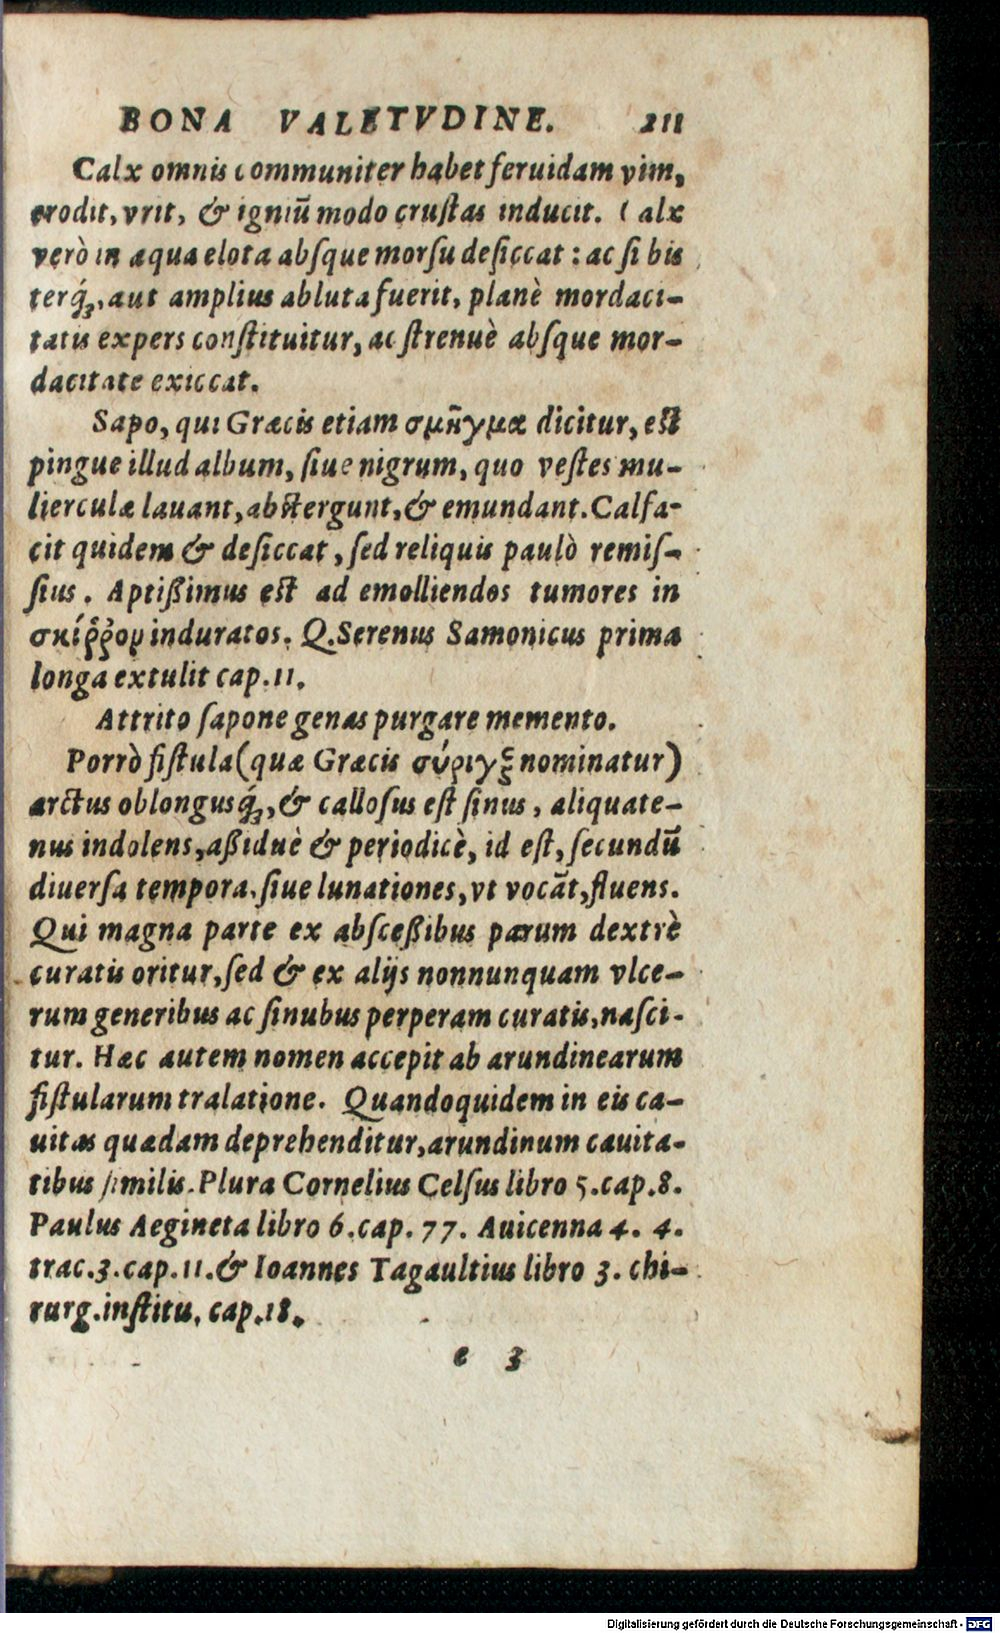 BONA VALETVDINE. 211
Calx omnis communiter habet feruidam vim,
erodit, vrit, & igniũ modo crustas inducit. Calx
verò in aqua elota absque morsu desiccat: ac si bis
terq́ꝫ, aut amplius abluta fuerit, planè mordaci-
tatis expers constituitur, ac strenuè absque mor-
dacitate exiccat.
Sapo, qui Græcis etiam σμῆγμα dicitur, est
pingue illud album, siue nigrum, quo vestes mu-
lierculæ lauant, abstergunt, & emundant. Calfa-
cit quidem & desiccat, sed reliquis paulò remis-
sius. Aptißimus est ad emolliendos tumores in
σκίῤῥου induratos. Q. Serenus Samonicus prima
longa extulit cap. 11.
Attrito sapone genas purgare memento.
Porrò fistula (quæ Græcis σύριγξ nominatur)
arctus oblongusq́ꝫ, & callosus est sinus, aliquate-
nus indolens, aßiduè & periodicè, id est, secundũ
diuersa tempora, siue lunationes, vt vocãt, fluens.
Qui magna parte ex absceßibus parum dextrè
curatis oritur, sed & ex alijs nonnunquam vlce-
rum generibus ac sinubus perperam curatis, nasci-
tur. Hæc autem nomen accepit ab arundinearum
fistularum tralatione. Quandoquidem in eis ca-
uitas quædam deprehenditur, arundinum cauita-
tibus similis. Plura Cornelius Celsus libro 5. cap. 8.
Paulus Aegineta libro 6. cap. 77. Auicenna 4. 4.
trac. 3. cap. 11. & Ioannes Tagaultius libro 3. chi-
rurg. institu. cap. 18.
e 3
Digitalisierung gefördert durch die Deutsche Forschungsgemeinschaft - DFG